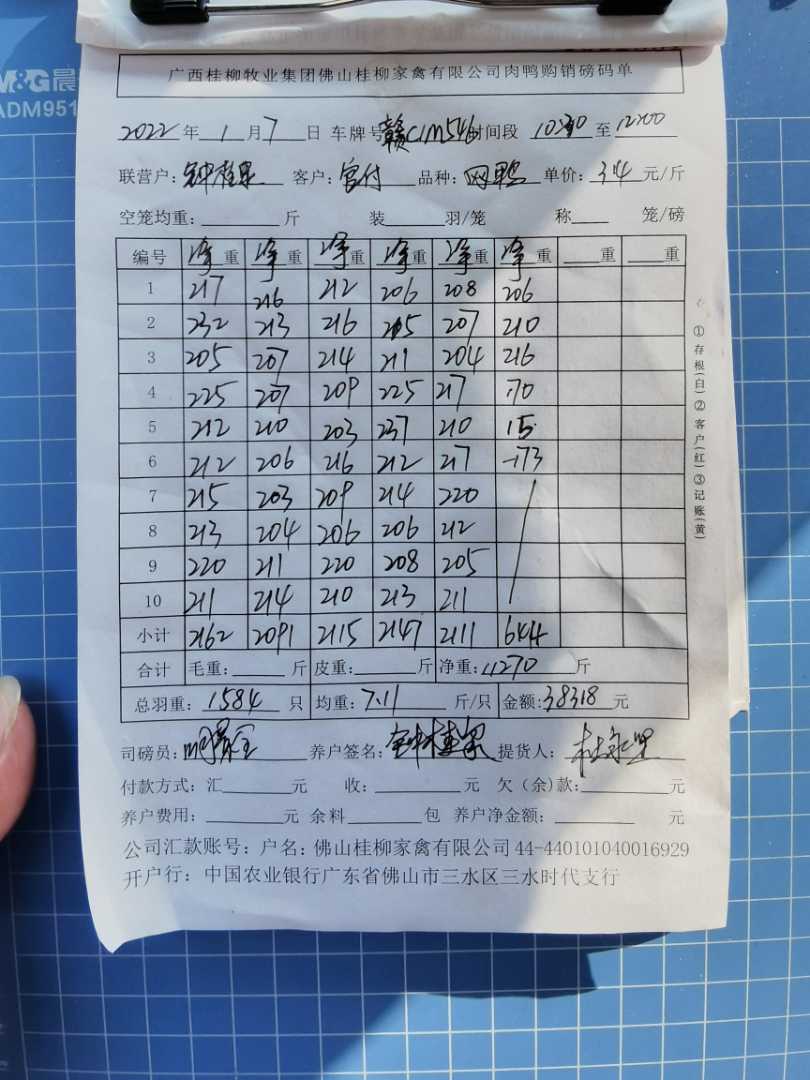 M&G 晨
ADM951
广西桂柳牧业集团佛山桂柳家禽有限公司肉鸭购销磅码单
2022 年 1 月 7 日 车牌号 赣C1M546 时间段 10:30 至 12:00
联营户: 钟桂泉 客户: 官付 品种: 网鸭 单价: 3.4 元/斤
空笼均重: 斤 装 羽/笼 称 笼/磅
编号 净重 净重 净重 净重 净重 净重 重 重
1 217 216 212 206 208 206
2 232 213 216 215 207 210
3 205 207 214 211 204 216
4 225 207 209 225 217 70
5 212 210 203 237 210 15
6 212 206 216 212 217 -73
7 215 203 209 214 220
8 213 204 206 206 212
9 220 211 220 208 205
10 211 214 210 213 211
小计 2162 2091 2115 2147 2111 644
合计 毛重: 斤 皮重: 斤 净重: 11270 斤
总羽重: 1584 只 均重: 7.11 斤/只 金额: 38318 元
司磅员: 养户签名: 钟桂泉 提货人:
付款方式: 汇 元 收: 元 欠(余)款: 元
养户费用: 元 余料 包 养户净金额: 元
公司汇款账号: 户名: 佛山桂柳家禽有限公司 44-440101040016929
开户行: 中国农业银行广东省佛山市三水区三水时代支行
①存根(白)②客户(红)③记账(黄)